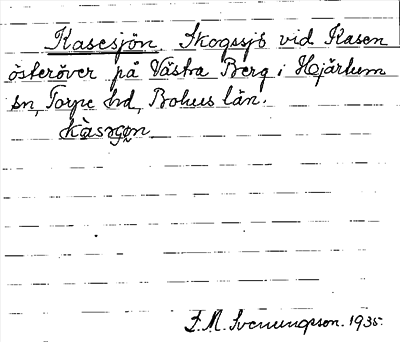 Kasesjön. Skogssjö vid Kasen
österöver på Västra Berg i Hjärtum
sn, Torpe hd, Bohus län.
F. M. Svenungsson. 1935.